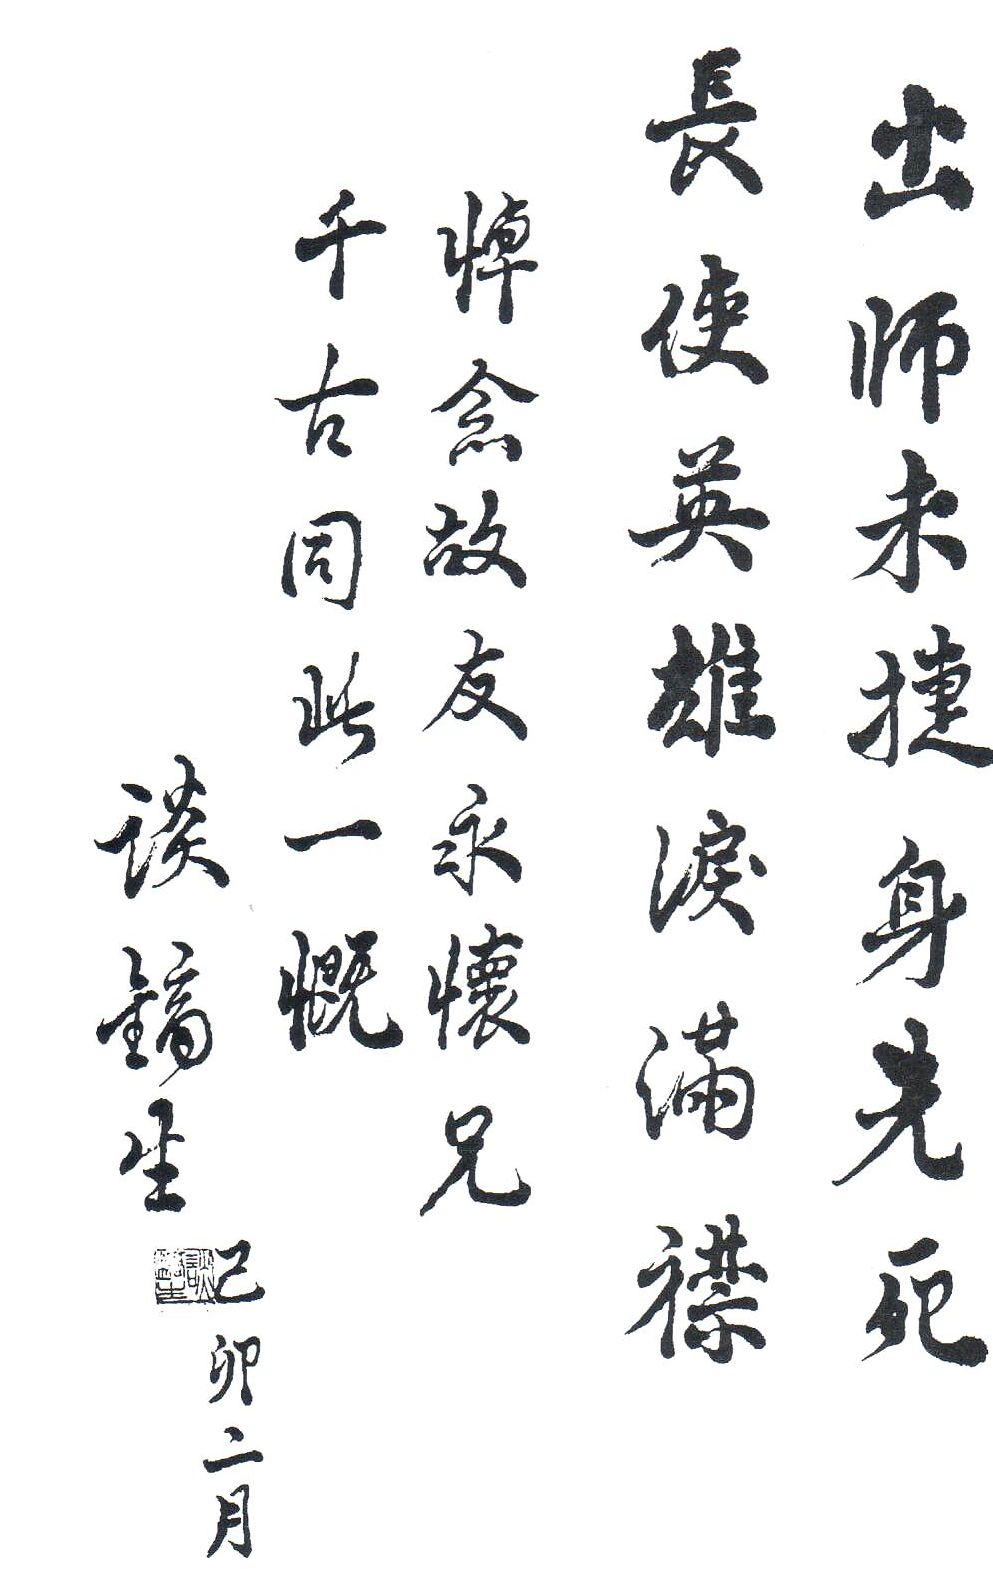 出师未捷身先死
長使英雄淚滿襟
悼念故友永懷兄
千古同此一慨
谈镐生
己卯二月